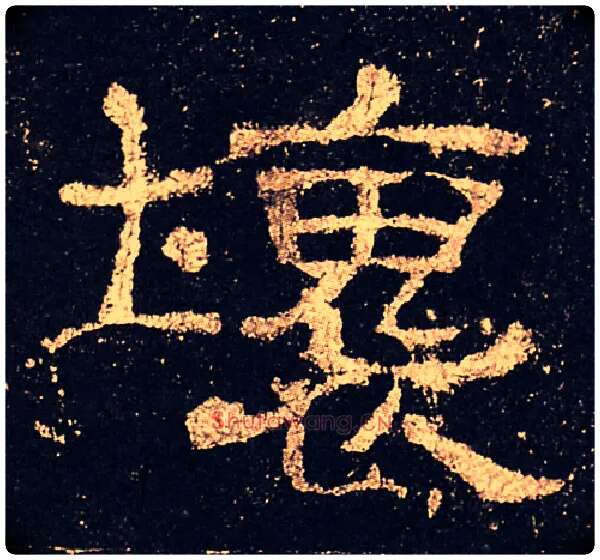 壞
Shufawang.CN